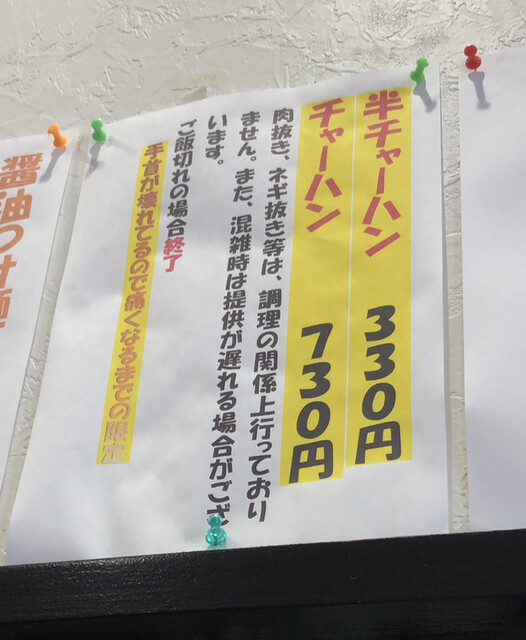 半チャーハン 330円
チャーハン 730円
肉抜き、ネギ抜き等は、調理の関係上行っており
ません。また、混雑時は提供が遅れる場合がござ
います。
ご飯切れの場合終了
手首が壊れてるので痛くなるまでの限定
醤油つけ麺